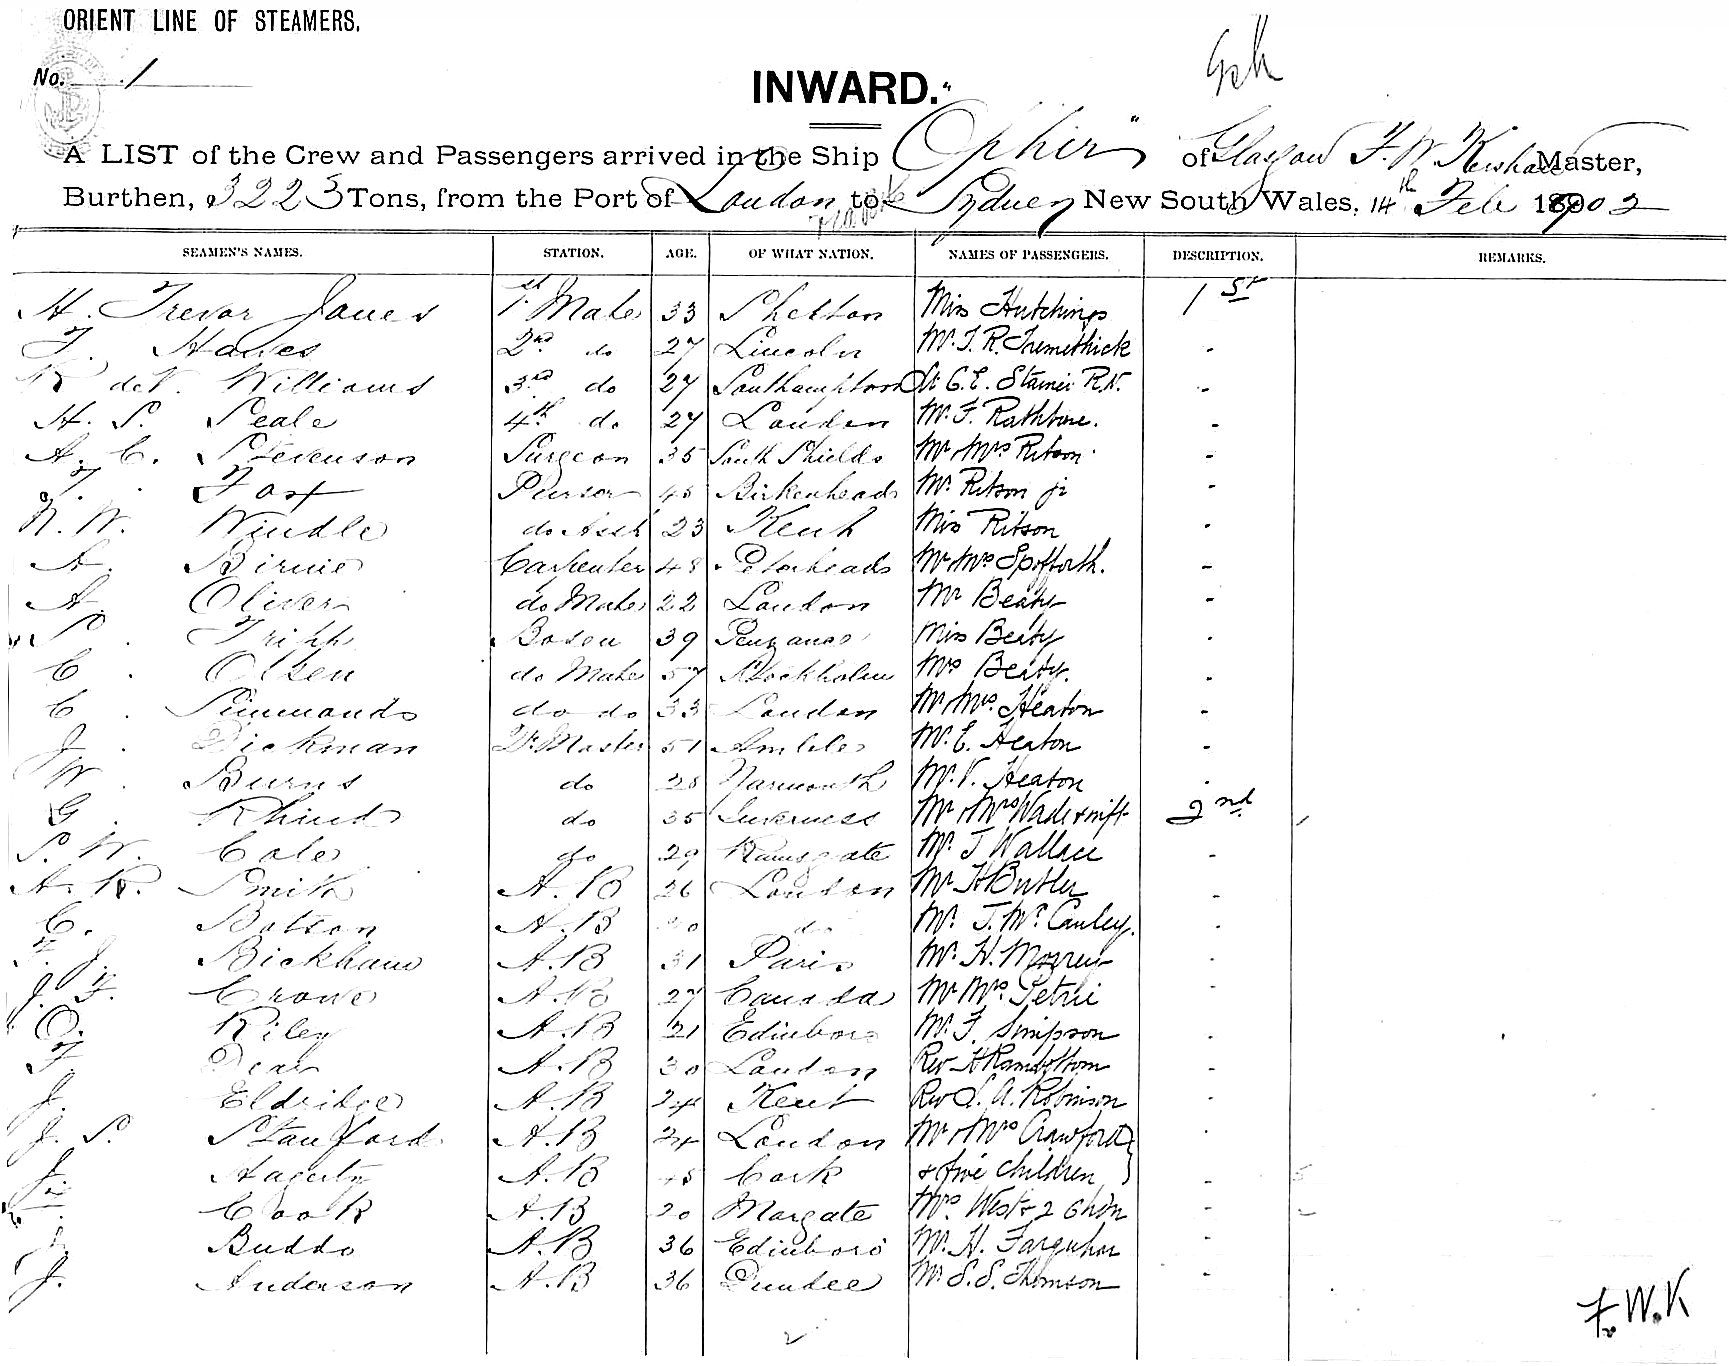 ORIENT LINE OF STEAMERS.
No. 1
INWARD.
A LIST of the Crew and Passengers arrived in the Ship "Ophir" of Glasgow F. W. Kershaw Master,
Burthen, 3223 Tons, from the Port of London to Sydney New South Wales, 14th Feb 1902
SEAMEN'S NAMES. STATION. AGE. OF WHAT NATION. NAMES OF PASSENGERS. DESCRIPTION. REMARKS.
H. Trevor Jones 1st Mate 33 Shelton Miss Hutchings 1st
F. Hawes 2nd do 27 Lincoln Mr. J. R. Tremethick -
R deV. Williams 3rd do 27 Southampton Lt C. E. Stainer R.N. -
H. S. Peale 4th do 27 London Mr. F. Rathbone. -
A. C. Stevenson Surgeon 35 South Shields Mr Mrs Ritson -
Fox Purser 45 Birkenhead Mr. Ritson jr -
N. W. Windle do Asst 23 Kent Miss Ritson -
A. Birnie Carpenter 48 Peterhead Mr Mrs Spofforth. -
A. Oliver do Mate 22 London Mr Beaty -
S. Tripp Bosen 39 Penzance Miss Beaty -
C. Olsen do Mate 57 Stockholm Mrs Beaty. -
C. Simmonds do do 33 London Mr Mrs. Heaton -
J. Dickman Qr Master 51 Amble Mr. E. Heaton -
W. Burns do 28 Yarmouth Mr. V. Heaton -
G. Rhind do 35 Inverness Mr & Mrs Wade & inft 2nd
S. W. Cole do 29 Ramsgate Mr. J Wallace -
A. R. Smith A.B 26 London Mr H Butler -
C. Botson A.B do Mr. J. McCauley. -
F. J. Bickham A.B 31 Paris Mr. H. Morrey -
J. F. Crowe A.B 27 Canada Mr Mrs. Petrie -
O. Riley A.B 21 Edinboro Mr. F. Simpson -
F. Dear A.B 30 London Rev H Rambottom -
J. Eldridge A.B 24 Kent Rev S. A. Robinson -
J. S. Stanford A.B 24 London Mr & Mrs Crawford
J. Hagerty A.B 45 Cork & five children -
Cook A.B 20 Margate Mrs. West & 2 Chdn -
J. Buddo A.B 36 Edinboro Mr. H. Farquhar -
J. Anderson A.B 36 Dundee Mr. S. S. Thomson -
F.W.K